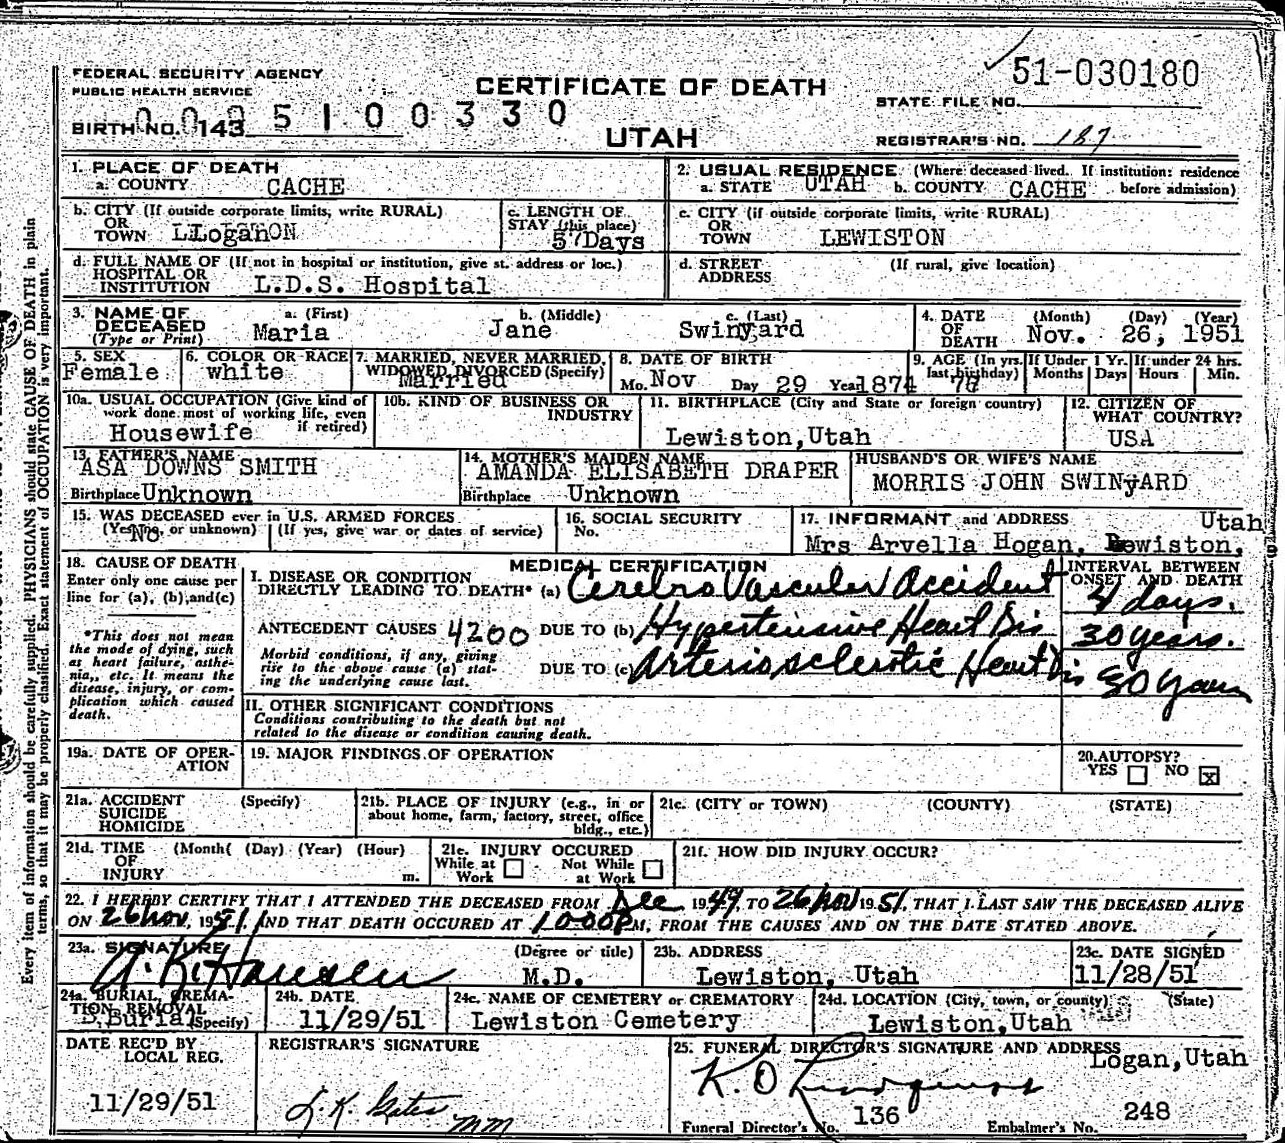 51-030180
FEDERAL SECURITY AGENCY
PUBLIC HEALTH SERVICE
CERTIFICATE OF DEATH
STATE FILE NO.
BIRTH NO. 143 5100330
UTAH
REGISTRAR'S NO. 187
1. PLACE OF DEATH
a. COUNTY CACHE
2. USUAL RESIDENCE (Where deceased lived. If institution: residence
a. STATE UTAH b. COUNTY CACHE before admission)
b. CITY (If outside corporate limits, write RURAL)
OR
TOWN Logan
c. LENGTH OF
STAY (this place)
57Days
c. CITY (if outside corporate limits, write RURAL)
OR
TOWN LEWISTON
d. FULL NAME OF (If not in hospital or institution, give st. address or loc.)
HOSPITAL OR
INSTITUTION L.D.S. Hospital
d. STREET (If rural, give location)
ADDRESS
3. NAME OF a. (First) b. (Middle) c. (Last)
DECEASED Maria Jane Swinyard
(Type or Print)
4. DATE (Month) (Day) (Year)
OF
DEATH Nov. 26, 1951
5. SEX
Female
6. COLOR OR RACE
white
7. MARRIED, NEVER MARRIED,
WIDOWED, DIVORCED (Specify)
Married
8. DATE OF BIRTH
Mo. Nov Day 29 Year 1874
9. AGE (In yrs. last birthday)
If Under 1 Yr.
Months Days
If under 24 hrs.
Hours Min.
10a. USUAL OCCUPATION (Give kind of
work done most of working life, even
if retired)
Housewife
10b. KIND OF BUSINESS OR
INDUSTRY
11. BIRTHPLACE (City and State or foreign country)
Lewiston,Utah
12. CITIZEN OF
WHAT COUNTRY?
USA
13. FATHER'S NAME
ASA DOWNS SMITH
Birthplace Unknown
14. MOTHER'S MAIDEN NAME
AMANDA ELISABETH DRAPER
Birthplace Unknown
HUSBAND'S OR WIFE'S NAME
MORRIS JOHN SWINyARD
15. WAS DECEASED ever in U.S. ARMED FORCES
(Yes, no, or unknown) (If yes, give war or dates of service)
No
16. SOCIAL SECURITY
No.
17. INFORMANT and ADDRESS Utah
Mrs Arvella Hogan, Lewiston,
18. CAUSE OF DEATH
Enter only one cause per
line for (a), (b), and (c)
*This does not mean
the mode of dying, such
as heart failure, asthe-
nia,, etc. It means the
disease, injury, or com-
plication which caused
death.
MEDICAL CERTIFICATION
INTERVAL BETWEEN
ONSET AND DEATH
I. DISEASE OR CONDITION
DIRECTLY LEADING TO DEATH* (a) Cerebro Vascular Accident 4 days.
ANTECEDENT CAUSES 4200 DUE TO (b) Hypertensive Heart Dis 30 years.
Morbid conditions, if any, giving
rise to the above cause (a) stat-
ing the underlying cause last.
DUE TO (c) Arteriosclerotic Heart Dis 30 years
II. OTHER SIGNIFICANT CONDITIONS
Conditions contributing to the death but not
related to the disease or condition causing death.
19a. DATE OF OPER-
ATION
19. MAJOR FINDINGS OF OPERATION
20. AUTOPSY?
YES NO x
21a. ACCIDENT (Specify)
SUICIDE
HOMICIDE
21b. PLACE OF INJURY (e.g., in or
about home, farm, factory, street, office
bldg., etc.)
21c. (CITY or TOWN) (COUNTY) (STATE)
21d. TIME (Month( (Day) (Year) (Hour)
OF
INJURY m.
21e. INJURY OCCURED
While at Work Not While at Work
21f. HOW DID INJURY OCCUR?
22. I HEREBY CERTIFY THAT I ATTENDED THE DECEASED FROM Dec 1949, TO 26 Nov 1951, THAT I LAST SAW THE DECEASED ALIVE
ON 26 nov, 1951, AND THAT DEATH OCCURED AT 1000P M, FROM THE CAUSES AND ON THE DATE STATED ABOVE.
23a. SIGNATURE (Degree or title)
A.K. Hansen M.D.
23b. ADDRESS
Lewiston, Utah
23c. DATE SIGNED
11/28/51
24a. BURIAL, CREMA-
TION, REMOVAL
Burial (Specify)
24b. DATE
11/29/51
24c. NAME OF CEMETERY or CREMATORY
Lewiston Cemetery
24d. LOCATION (City, town, or county) (State)
Lewiston,Utah
DATE REC'D BY
LOCAL REG.
11/29/51
REGISTRAR'S SIGNATURE
mm
25. FUNERAL DIRECTOR'S SIGNATURE AND ADDRESS
Logan,Utah
K O
Funeral Director's No. 136 Embalmer's No. 248
Every item of information should be carefully supplied. PHYSICIANS should state CAUSE OF DEATH in plain
terms, so that it may be properly classified. Exact statement of OCCUPATION is very important.